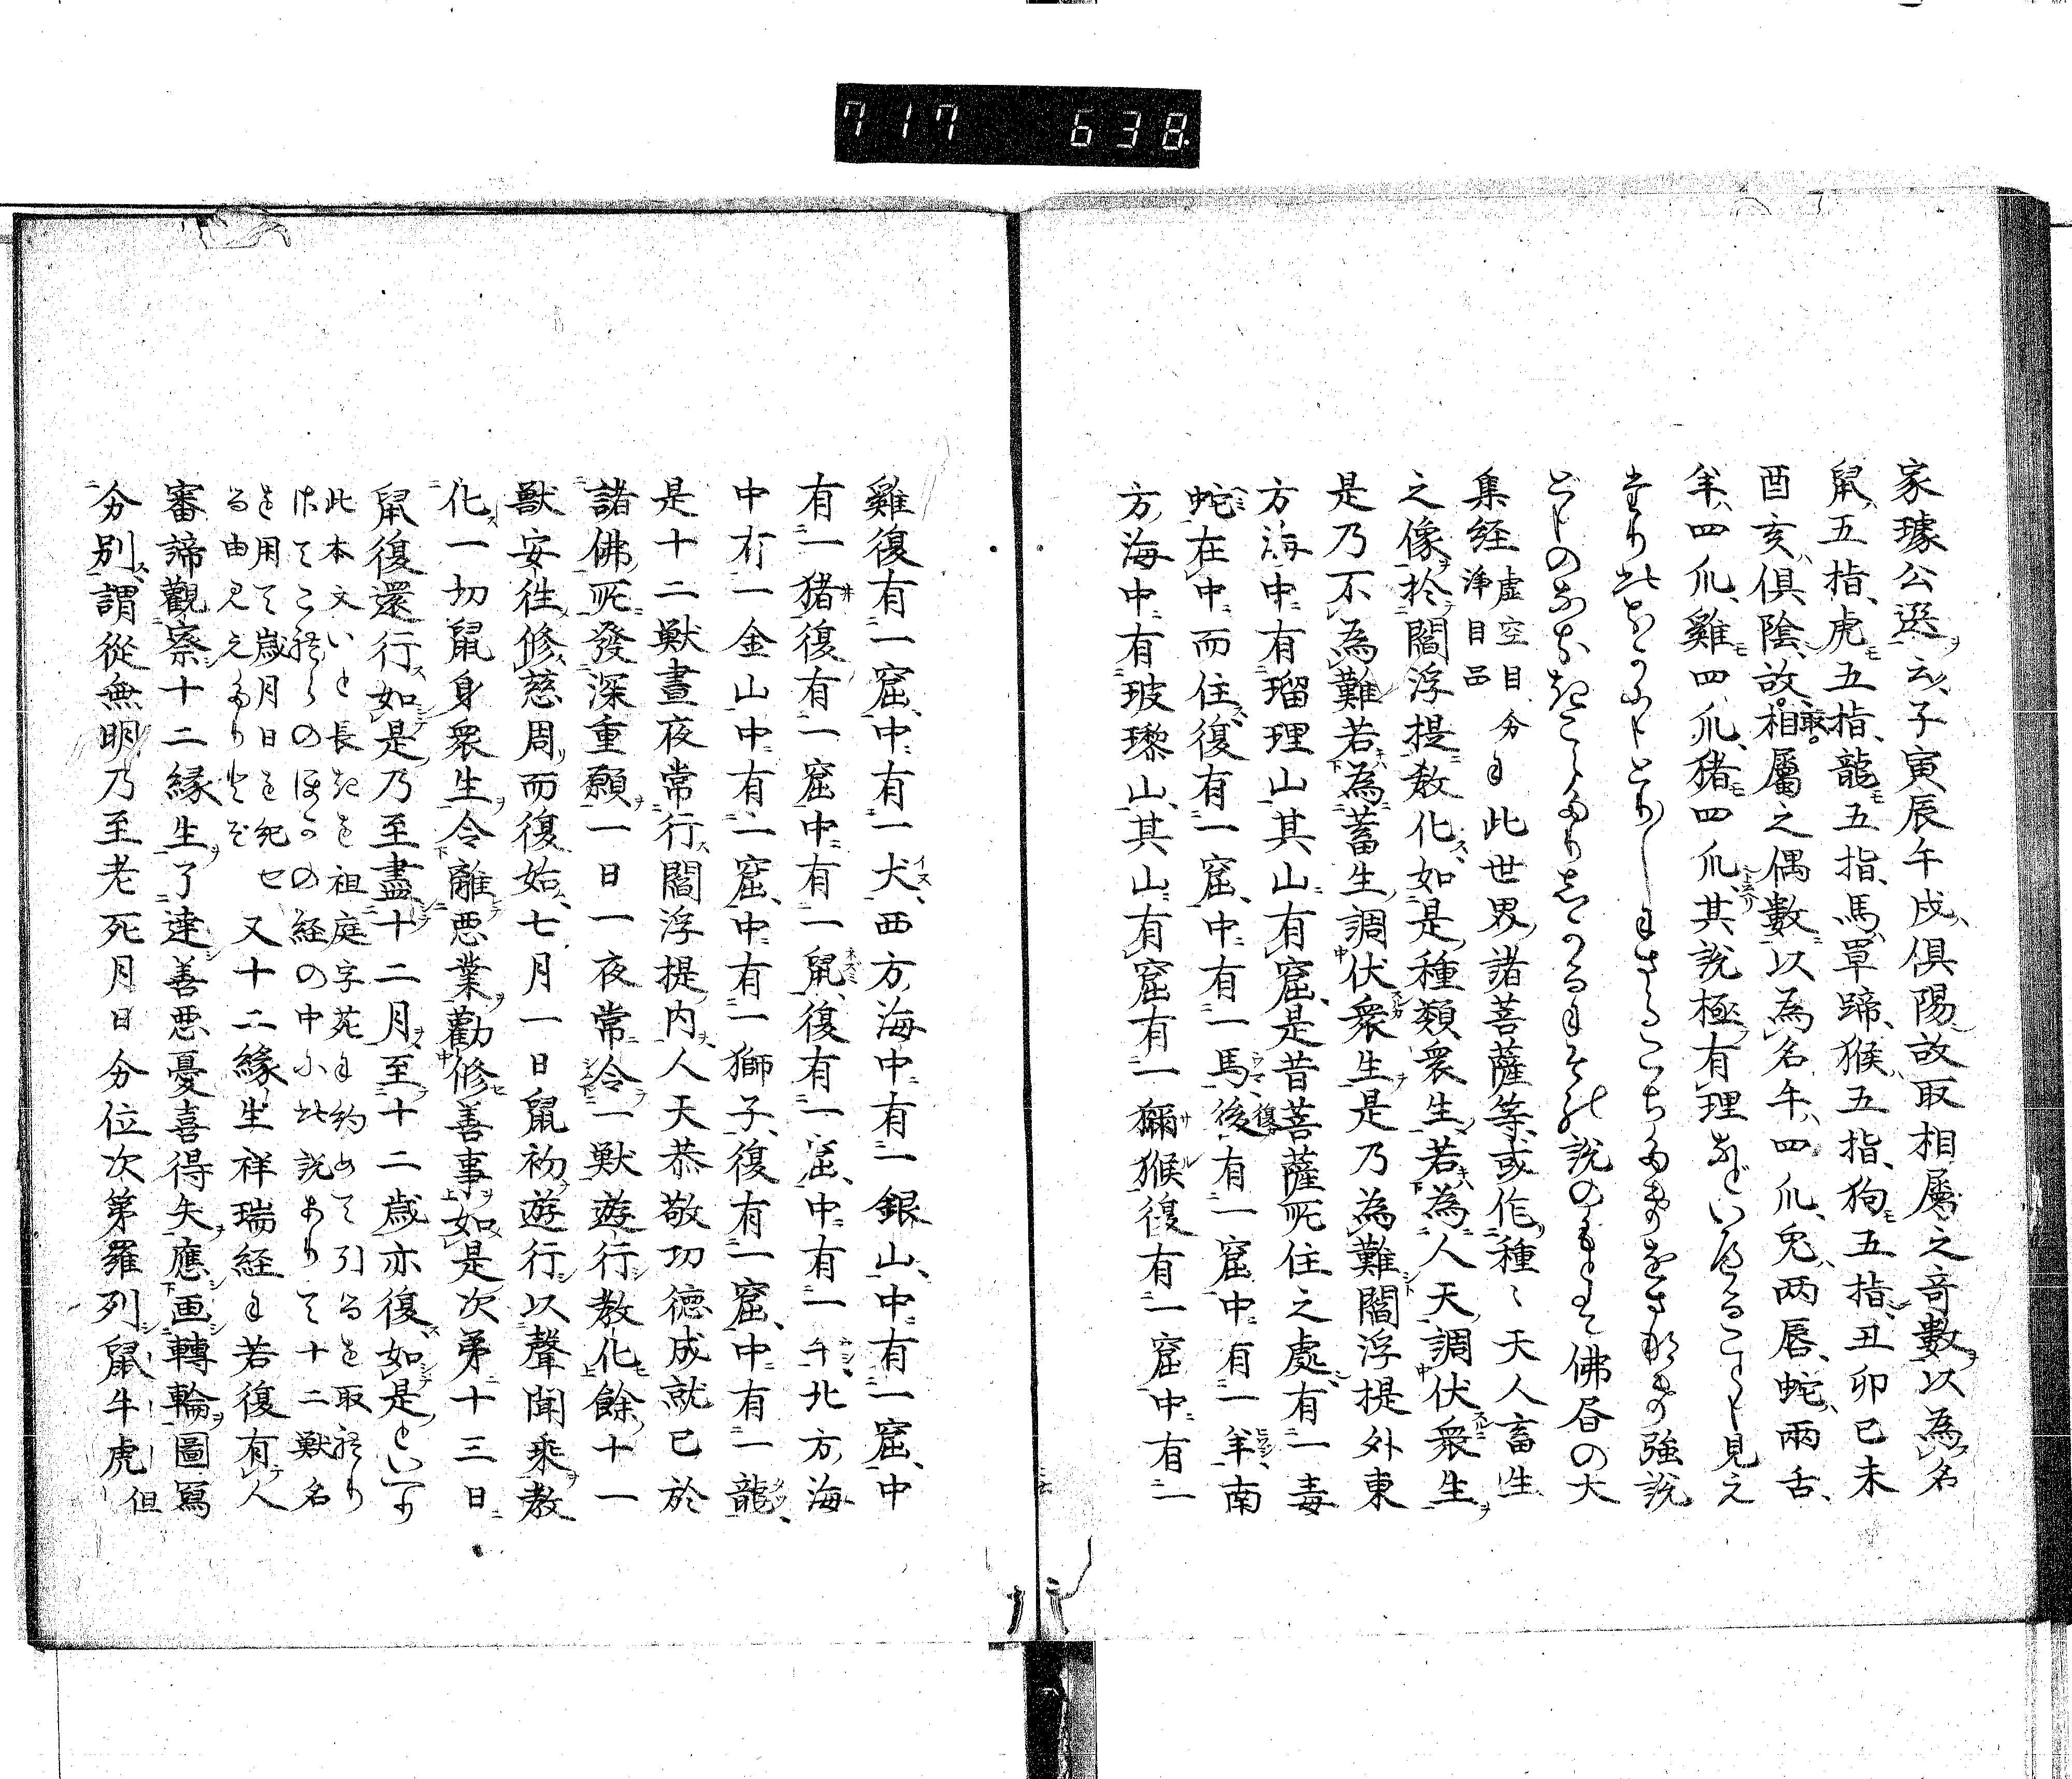 717 638
家璩公選云子寅辰午戌俱陽故取相屬之奇數以為名
鼠五指虎五指龍五指馬單蹄猴五指狗五指丑卯巳未
酉亥俱陰故取相屬之偶數以為名牛四爪兎両唇蛇兩舌
羊四爪雞四爪猪四爪其説極有理などいへること見え
強説
説の 佛昏の大
集経虚空目分浄目品 此世界諸菩薩等或作種〻天人畜生
之像於閻浮提教化如是種類衆生若為人天調伏衆生
是乃不為難若為蓄生調伏衆生是乃為難閻浮提外東
方海中有瑠理山其山有窟是昔菩薩所住之處有一毒
蛇在中而住復有一窟中有一馬後復有一窟中有一羊南
方海中有玻瓈山其山有窟有一獼猴復有一窟中有一
雞復有一窟中有一犬西方海中有一銀山中有一窟中
有一猪復有一窟中有一鼠復有一窟中有一牛北方海
中有一金山中有一窟中有一獅子復有一窟中有一龍
是十二獣晝夜常行閻浮提内人天恭敬功徳成就已於
諸佛所發深重願一日一夜常令一獣遊行教化餘十一
獣安住修慈周而復始七月一日鼠初遊行以聲聞乘教
化一切鼠身衆生令離悪業勸修善事如是次第十三日
鼠復還行如是乃至盡十二月至十二歳亦復如是といへり
此本文いと長きを祖庭字苑に約めて引るを取れり
はてこれらのほかの経の中に此説ありて十二獣名
を用て歳月日を紀せ
る由見えたり 又十二縁生祥瑞経に若復有人
審諦觀察十二縁生了達善悪憂喜得失應画轉輪圖寫
分別謂從無明乃至老死月日分位次第羅列鼠牛虎但